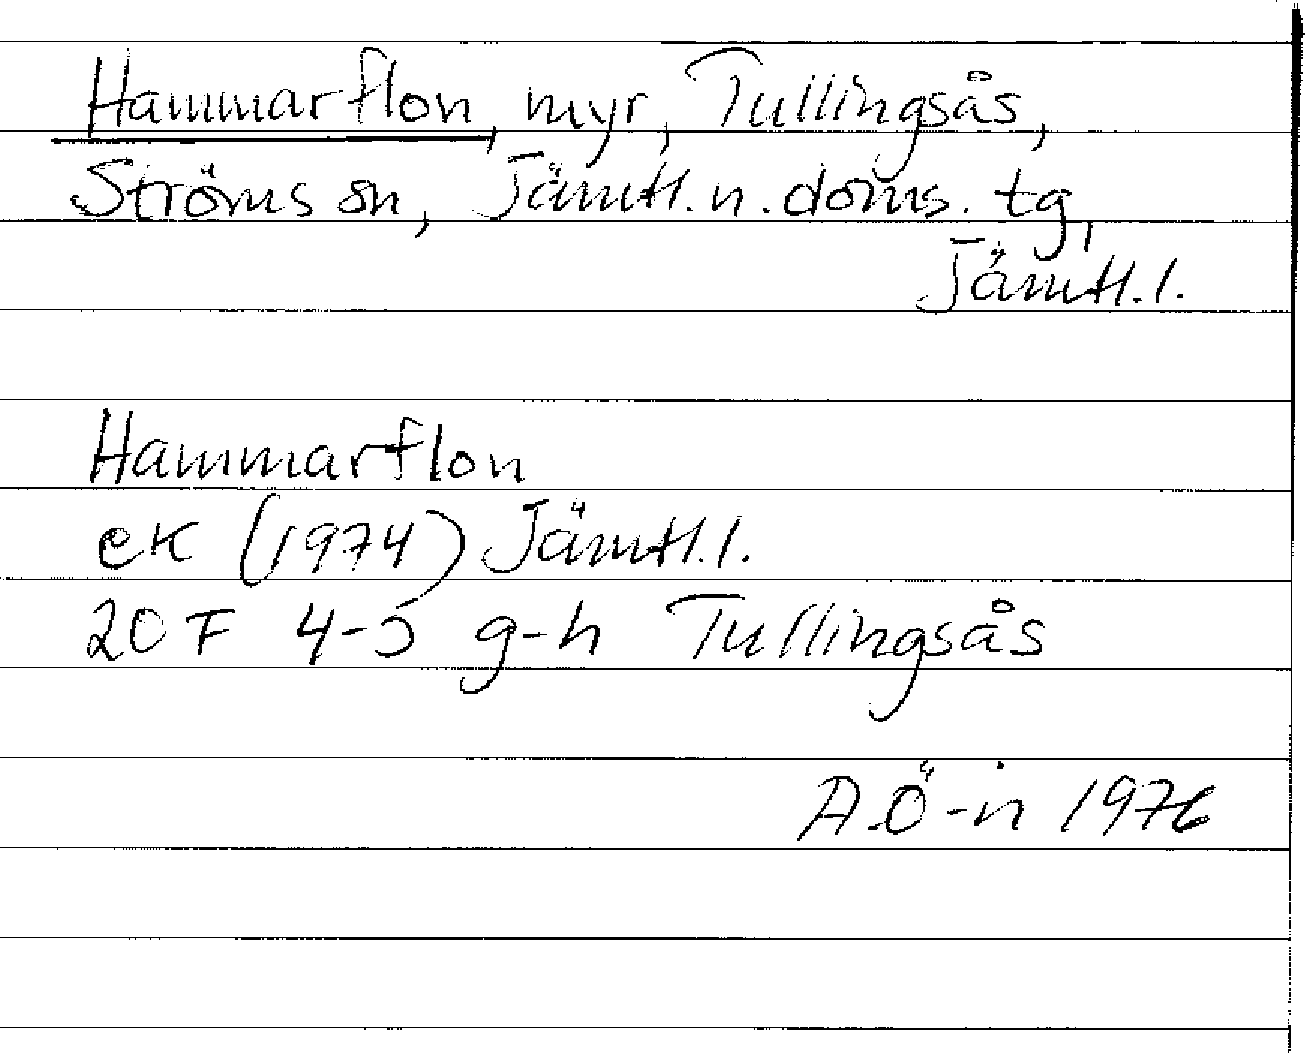 Hammarflon, myr, Tullingsås,
Ströms sn, Jämtl. n. doms. tg,
Jämtl. l.
Hammarflon
ek (1974) Jämtl. l.
20 F 4-5 g-h Tullingsås
A.Ö-n 1976